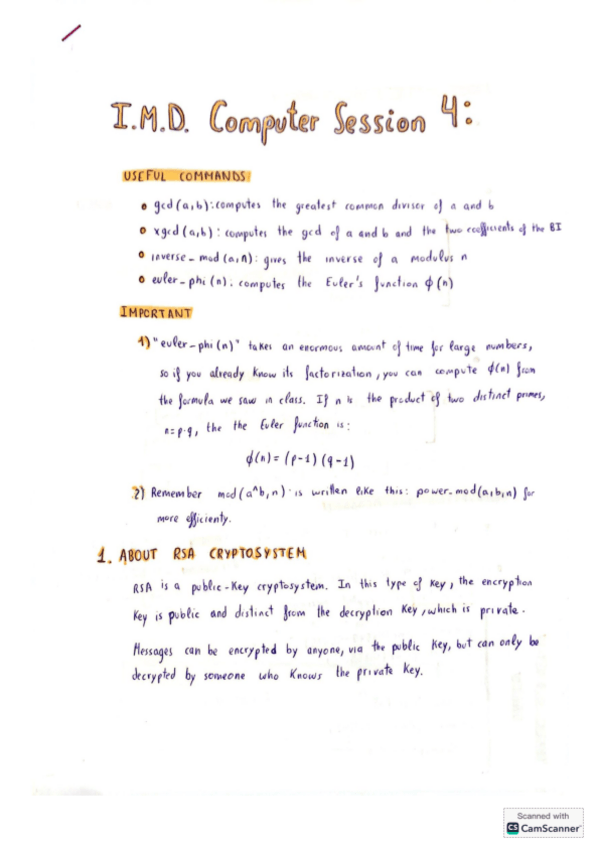 I.M.D. Computer Session 4:
USEFUL COMMANDS:
• gcd(a,b): computes the greatest common divisor of a and b
• xgcd(a,b): computes the gcd of a and b and the two coefficients of the BI
• inverse_mod(a,n): gives the inverse of a modulus n
• euler-phi(n): computes the Euler's function ϕ(n)
IMPORTANT
1) "euler-phi(n)" takes an enormous amount of time for large numbers,
so if you already know its factorization, you can compute ϕ(n) from
the formula we saw in class. If n is the product of two distinct primes,
n=p·q, the the Euler function is:
ϕ(n) = (p-1)(q-1)
2) Remember mod(a^b,n) is written like this: power_mod(a,b,n) for
more efficienty.
1. ABOUT RSA CRYPTOSYSTEM
RSA is a public-key cryptosystem. In this type of key, the encryption
key is public and distinct from the decryption key, which is private.
Messages can be encrypted by anyone, via the public key, but can only be
decrypted by someone who knows the private key.
Scanned with
CS CamScanner